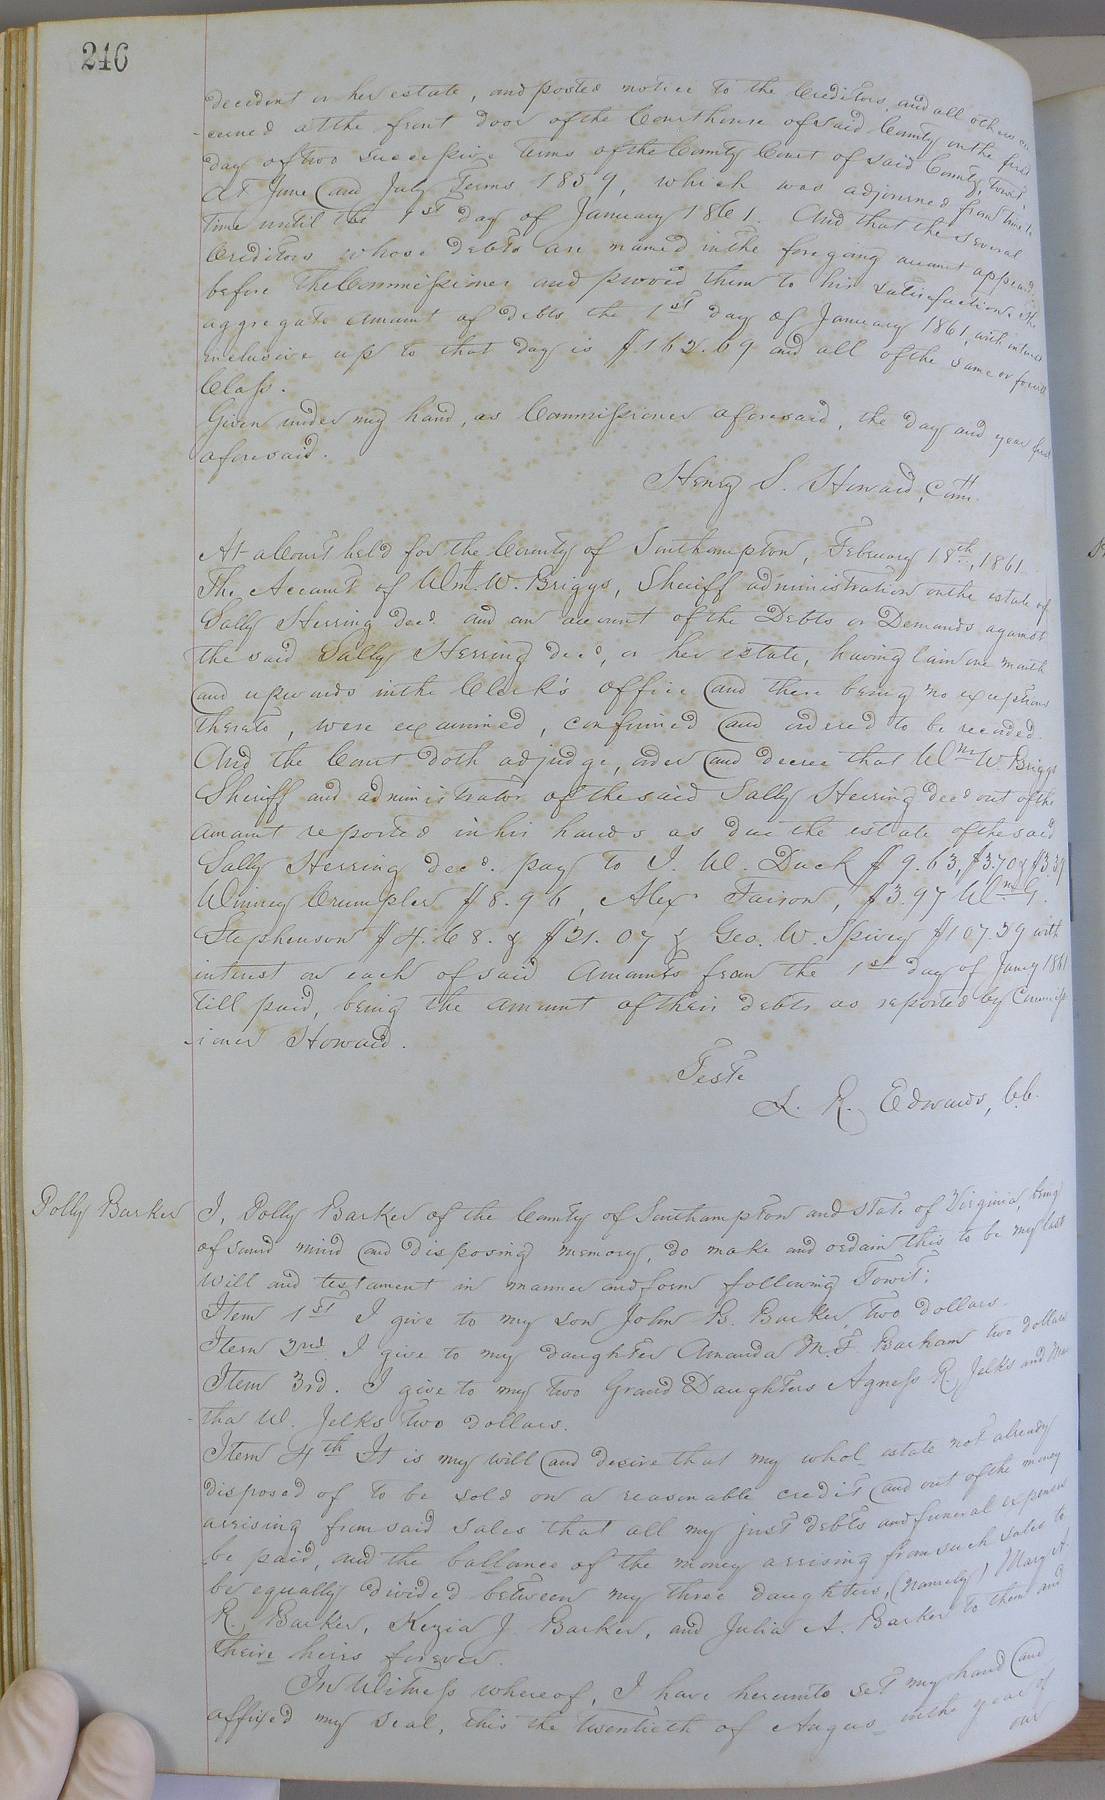 246
decedent or her estate, and posted notice to the Creditors, and all others con
-cerned at the front door of the Courthouse of said County on the first
day of two successive terms of the County Court of said County, towit,
At June and July Terms 1859, which was adjourned from time to
time until the 1st day of January 1861. And that the several
Creditors whose debts are named in the foregoing account appeared
before The Commissioner and proved them to his satisfaction. The
aggregate amount of debts the 1st day of January 1861, with interest
inclusive up to that day is $162.69 and all of the same or fourth
Class.
Given under my hand, as Commissioner aforesaid, the day and year first
aforesaid.
Henry S. Howard, Comr.
At a Court held for the County of Southampton, February 18th, 1861
The Account of Wm. W. Briggs, Sheriff administration on the estate of
Sally Herring decd. and an account of the Debts or Demands against
the said Sally Herring decd, or her estate, having lain one month
and upwards in the Clerk's office and there being no exceptions
thereto, were examined, confirmed and ordered to be recorded.
And the Court doth adjudge, order and decree that Wm. W. Briggs
Sheriff and administrator of the said Sally Herring decd out of the
amount reported in his hands as due the estate of the said
Sally Herring decd. pay to J. W. Duck $9.63, $3.70 & $3.39
Winney Crumpler $8.96, Alex Faison, $3.97 Wm G.
Stephenson $4.68. & $21.07 & Geo. W. Spivey $107.29 with
interest on each of said Amounts from the 1st day of Jany 1861
till paid, being the amount of their debts as reported by Commiss
-ioner Howard.
Teste
L. R. Edwards, C.C.
Polly Barker
I, Polly Barker of the County of Southampton and state of Virginia, being
of sound mind and disposing memory, do make and ordain this to be my last
will and testament in manner and form following Towit;
Item 1st I give to my son John B. Barker, two dollars.
Item 2nd. I give to my daughter Amanda M. F. Barham two dollars
Item 3rd. I give to my two Grand Daughters Agness R. Jelks and Mar
-tha W. Jelks two dollars.
Item 4th It is my will and desire that my whol estate not already
disposed of to be sold on a reasonable credit and out of the money
arrising from said sales that all my just debts and funeral expenses
be paid, and the ballance of the money arrising from such sales to
be equally divided between my three daughters, (namely) Mary A.
R. Barker, Kezia J. Barker, and Julia A. Barker to them and
theire heirs forever.
In Witness whereof, I have hereunto set my hand and
affixed my seal, this the twentieth of Augus in the year of
our